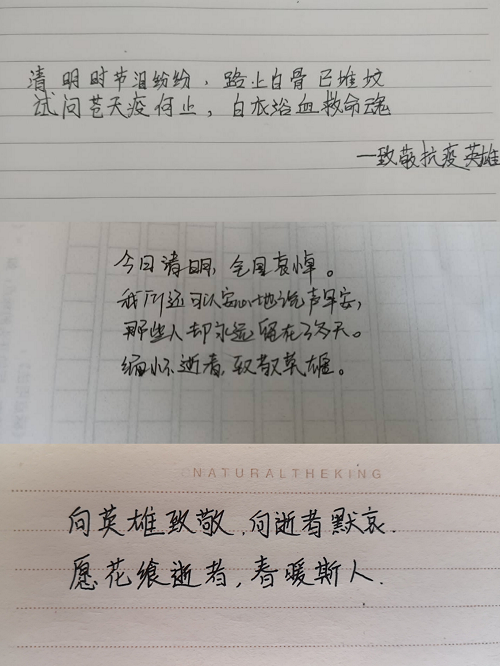 清明时节泪纷纷，路上白骨已堆坟
试问苍天疫何止，白衣浴血救命魂
—致敬抗疫英雄
今日清明，全国哀悼。
我们还可以安心地说声早安，
那些人却永远留在了冬天。
缅怀逝者，致敬英雄。
NATURALTHEKING
向英雄致敬，向逝者默哀．
愿花飨逝者，春暖斯人．